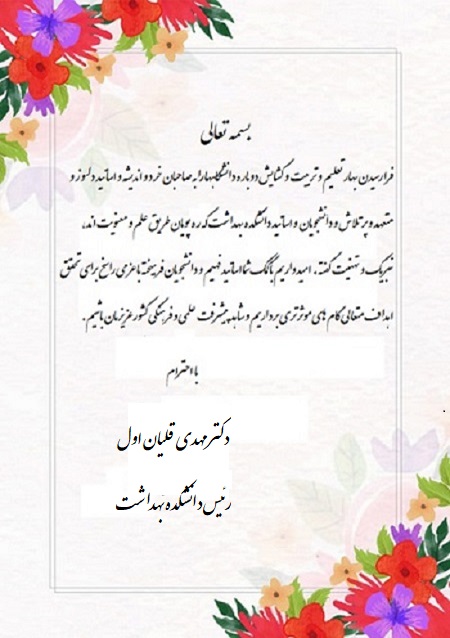 بسمه تعالی
فرارسیدن بهار تعلیم و تربیت و گشایش دوباره دانشگاهها را به صاحبان خرد و اندیشه و اساتید دلسوز و
متعهد و پر تلاش و دانشجویان و اساتید دانشکده بهداشت که ره پویان طریق علم و معنویت اند،
تبریک و تهنیت گفته، امیدواریم با کمک شما اساتید فهیم و دانشجویان فرهیخته با عزمی راسخ برای تحقق
اهداف متعالی گام های موثرتری برداریم و شاهد پیشرفت علمی و فرهنگی کشور عزیزمان باشیم.
با احترام
دکتر مهدی قلیان اول
رئیس دانشکده بهداشت